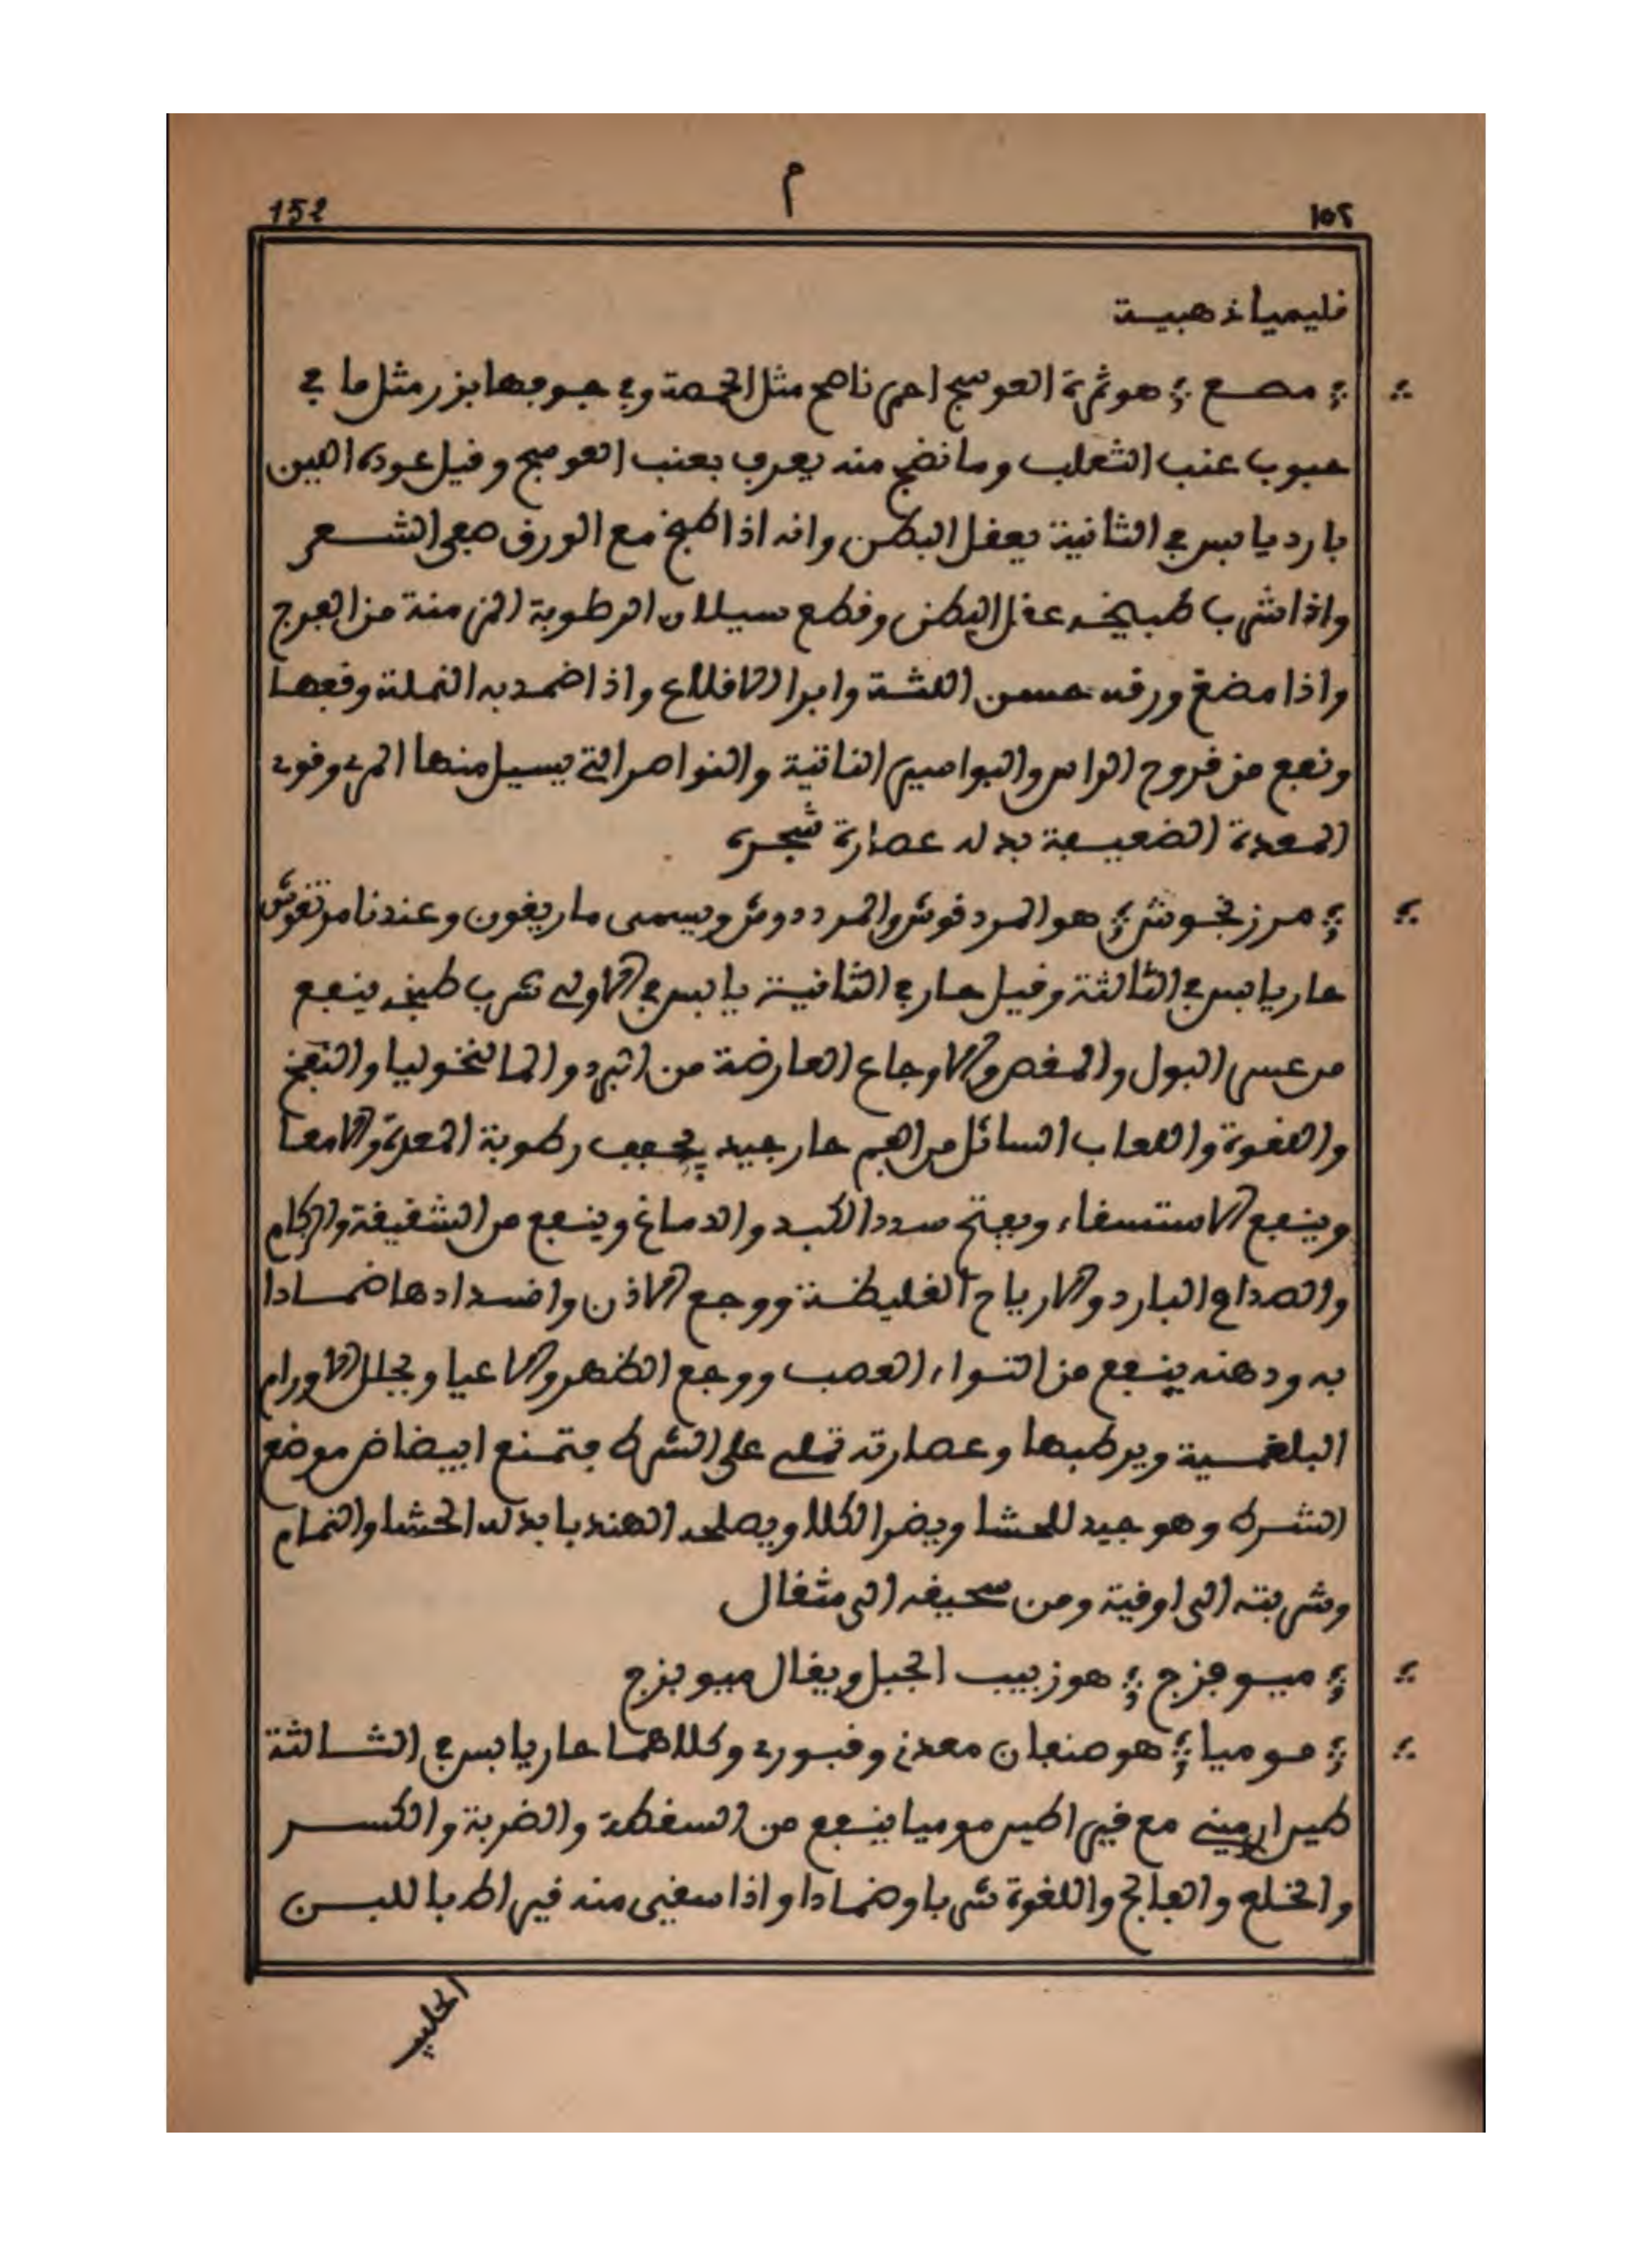 م
152 ١٥٢
فليميا ذهبية
مصع هو ثمرة العوسج احمر ناصع مثل الحمصة وفي جوفها بزر مثل ما في
حبوب عنب الثعلب وما نضج منه يعرف بعنب العوسج وقيل عوده العين
بارد يابس في الثانية يعقل البطن وانه اذا طبخ مع الورق صبغ الشعر
واذا شرب طبيخه عقل البطن وقطع سيلان الرطوبة المزمنة من الفرج
واذا مضغ ورقه حسن اللثة وابرا الاقلاع واذا ضمد به النملة وقفها
ونفع من قروح الراس والبواسير الناتية والنواصر التي يسيل منها المرى وقوى
المعدة الضعيفة بدله عصارة شجره
مرزنجوش هو المردقوش والمرددوش ويسمى ماريغون وعندنا مرتقوش
حار يابس في الثالثة وقيل حار في الثانية يابس في الاولى شرب طبخه ينفع
من عسر البول والمغص والاوجاع العارضة من البرد والمالنخوليا والنفخ
واللقوة واللعاب السائل من الفم حار جيد يجفف رطوبة المعدة والامعا
وينفع الاستسقاء ويفتح سدد الكبد والدماغ وينفع من الشقيقة والزكام
والصداع البارد والارياح الغليظة ووجع الاذن وانسدادها ضمادا
به ودهنه ينفع من التواء العصب ووجع الظهر والاعيا ويحلل الاورام
البلغمية ويرطبها وعصارته تطلى على الشرط فتمنع ابيضاض موضع
الشرط وهو جيد للحشا ويضر الكلا ويصلحه الهندبا بدله الحشا والنمام
وشربته الى اوقية ومن سحيقه الى مثقال
ميوفزج هو زبيب الجبل ويقال ميوبزج
موميا هو صنفان معدني وقبوري وكلاهما حار يابس في الثالثة
طين ارميني مع قيراطين موميا ينفع من السقطة والضربة والكسر
والخلع والفالج واللقوة شربا وضمادا واذا سقي منه قيراط باللبن
الحليب